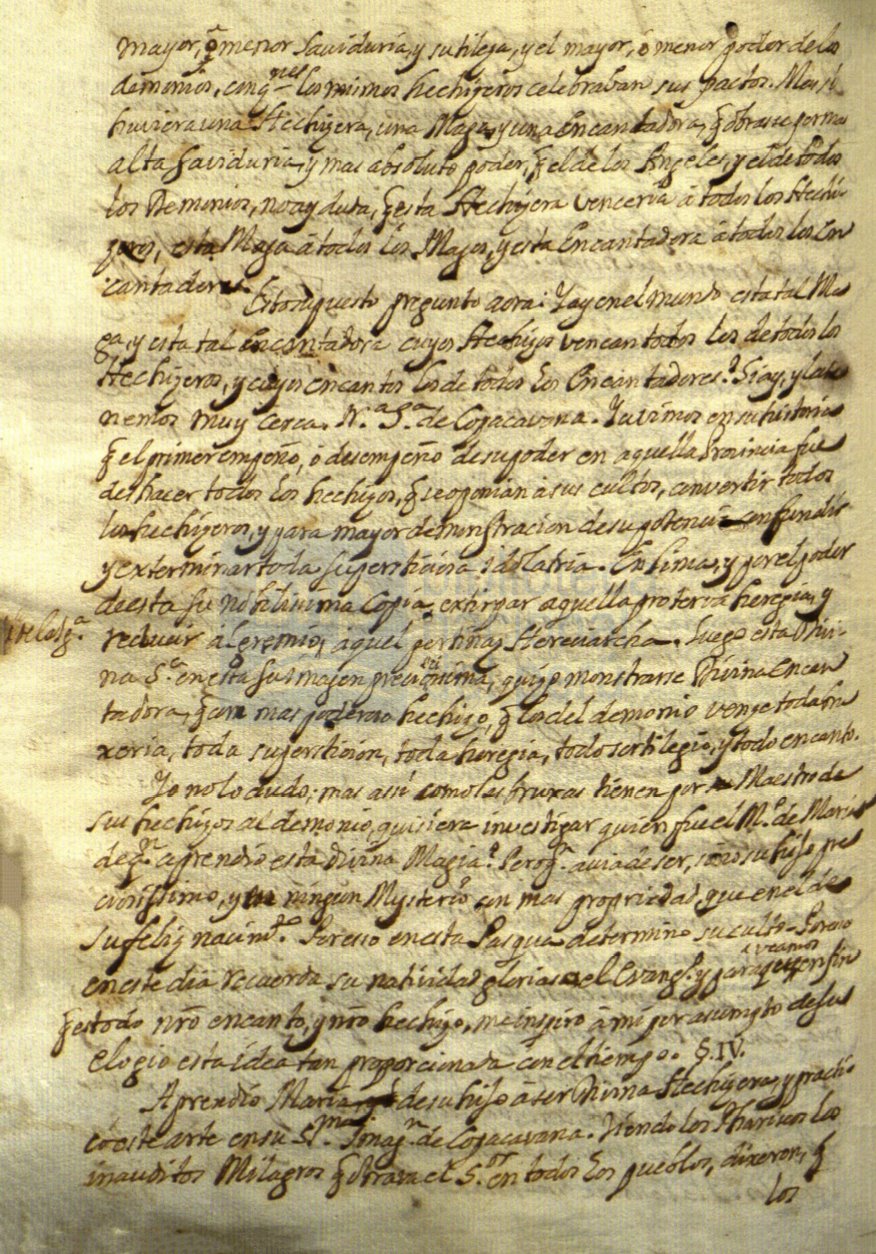 mayor, ò menor saviduria, y sutileza, y el mayor, ò menor poder de los
demonios, con qnes los mismos hechizeros celebraban sus pactos. Mas si
huviera una Hechizera, una Maga, y una Encantadora, q̃ obrase por mas
alta saviduria, y mas absoluto poder, q̃ el de los Angeles, y el de todos
los Demonios, no ay duda, q̃ esta Hechizera venceria â todos los Hechi-
zeros, esta Maga â todos los Magos, y esta Encantadora â todos los En
cantadores.
Esto supuesto pregunto aora: Y ay en el mundo esta tal Ma
ga, y esta tal Encantadora cuyos Hechizos vencan todos los de todos los
Hechizeros, y cuyos encantos los de todos los Encantadores? Si ay, y la te
nemos muy cerca. N.ª S.ª de Copacavana. Ya vimos en su historia
q̃ el primer empeño, ò desempeño de su poder en aquella Provincia fue
deshacer todos los hechizos, q̃ se oponian â sus cultos, convertir todos
los hechizeros, y para mayor demonstracion de su potencia confundir
y exterminar toda supersticiosa idolatria. En Lima, y por el poder
de esta su nobilissima Copia, extirpar aquella proterva heregia, y
reducir al gremio, à aquel pertinaz Hereciarcha. Luego esta Divi-
na S.ª en esta su Imagen preciosissima, quizo monstrarse Divina Encan
tadora, q̃ con mas poderoso hechizo, q̃ los del demonio venze toda bru
xeria, toda supersticion, toda heregia, todo sortilegio, y todo encanto.
Yo no lo dudo; mas assi como las bruxas tienen por su Maestro de
sus hechizos al demonio, quisiera investigar quien fue el M.º de Maria
de q.n aprendio esta divina Magia? Pero q.n avia de ser, sino su hijo pre
ciosissimo, y en ningun Mysterio con mas propriedad, que en el de
su feliz nacim.to Por esso en esta Pasqua determino su culto. Por esso
en este dia recuerda su natividad gloriosa el Evang.º y para q veamos en fin
q̃ es todo nrõ encanto, y nrõ hechizo, me inspiro â mi por asumpto de sus
elogio esta idea tan proporcionada con el tiempo. §. IV.
Aprendio Maria de su hijo â ser Divina Hechizera, y practi
cò este arte en su S.ma Imag.n de Copacavana. Viendo los Phariseos los
inauditos Milagros q̃ obrava el S.or en todos los pueblos, dixeron, q̃
los